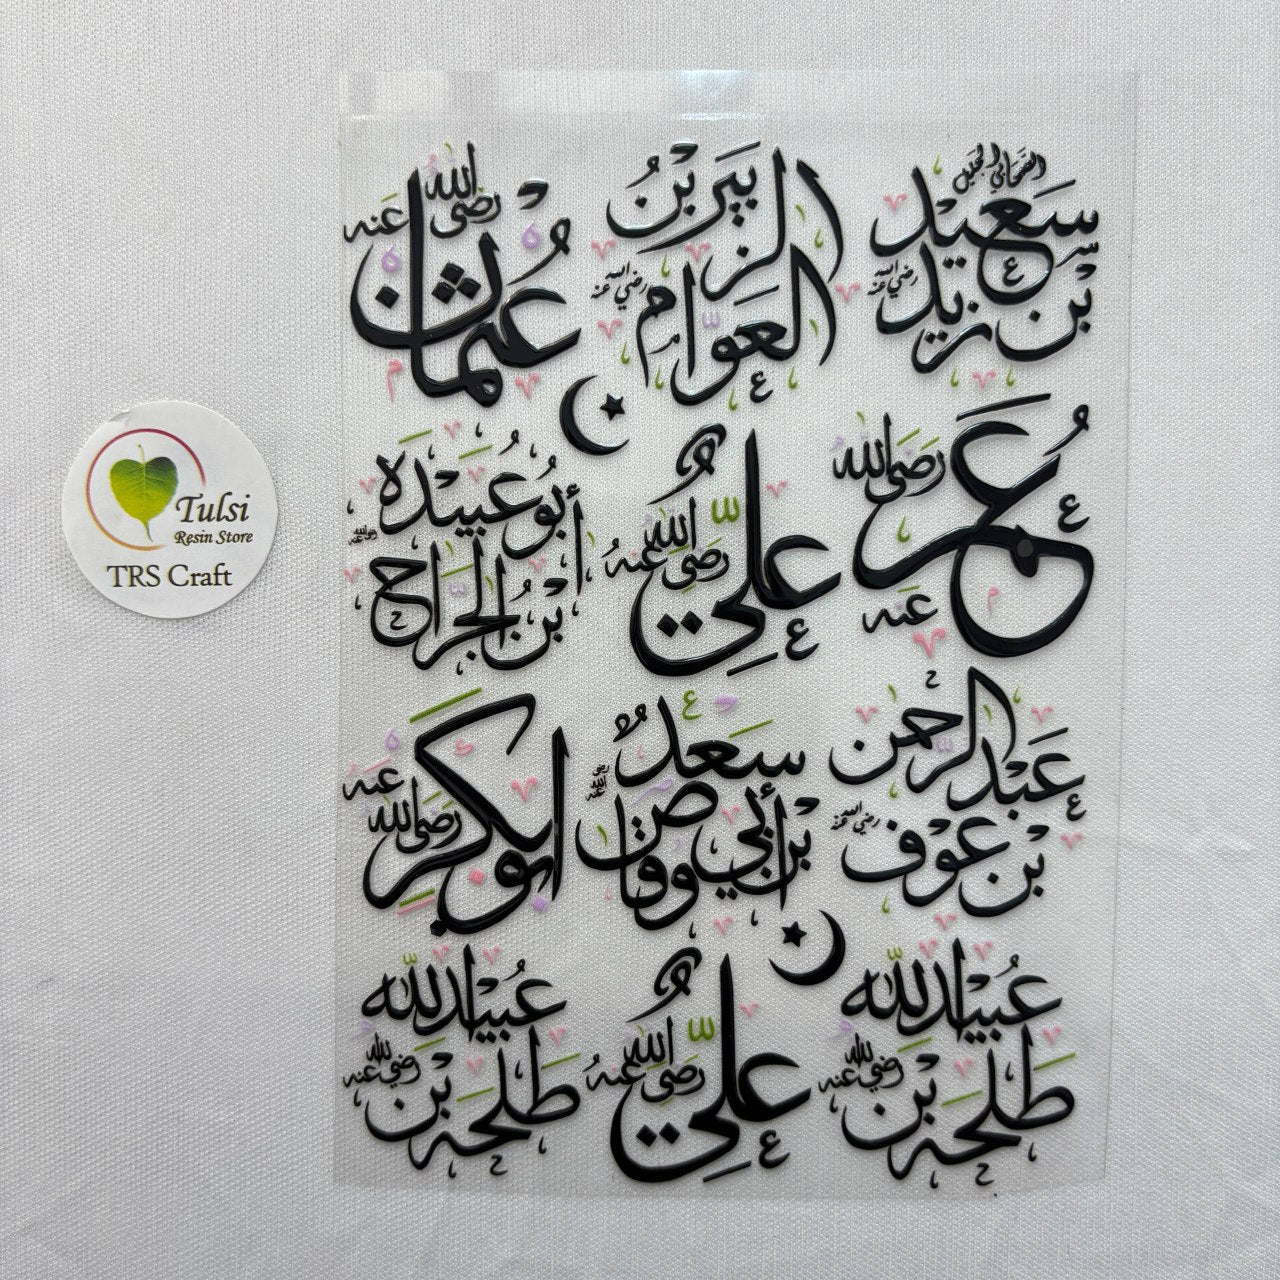 الصحابي الجليل
سعيد
بن زيد
رضي الله عنه
الزبير بن
العوام
رضي الله عنه
عثمان
رضي الله عنه
عمر
رضي الله عنه
علي
رضي الله عنه
أبو عبيدة
ابن الجراح
رضي الله عنه
عبد الرحمن
بن عوف
رضي الله عنه
سعد
بن أبي وقاص
رضي الله عنه
ابو بكر
رضي الله عنه
طلحه بن
عبيد الله
رضي الله عنه
علي
رضي الله عنه
طلحه بن
عبيد الله
رضي الله عنه
Tulsi
Resin Store
TRS Craft